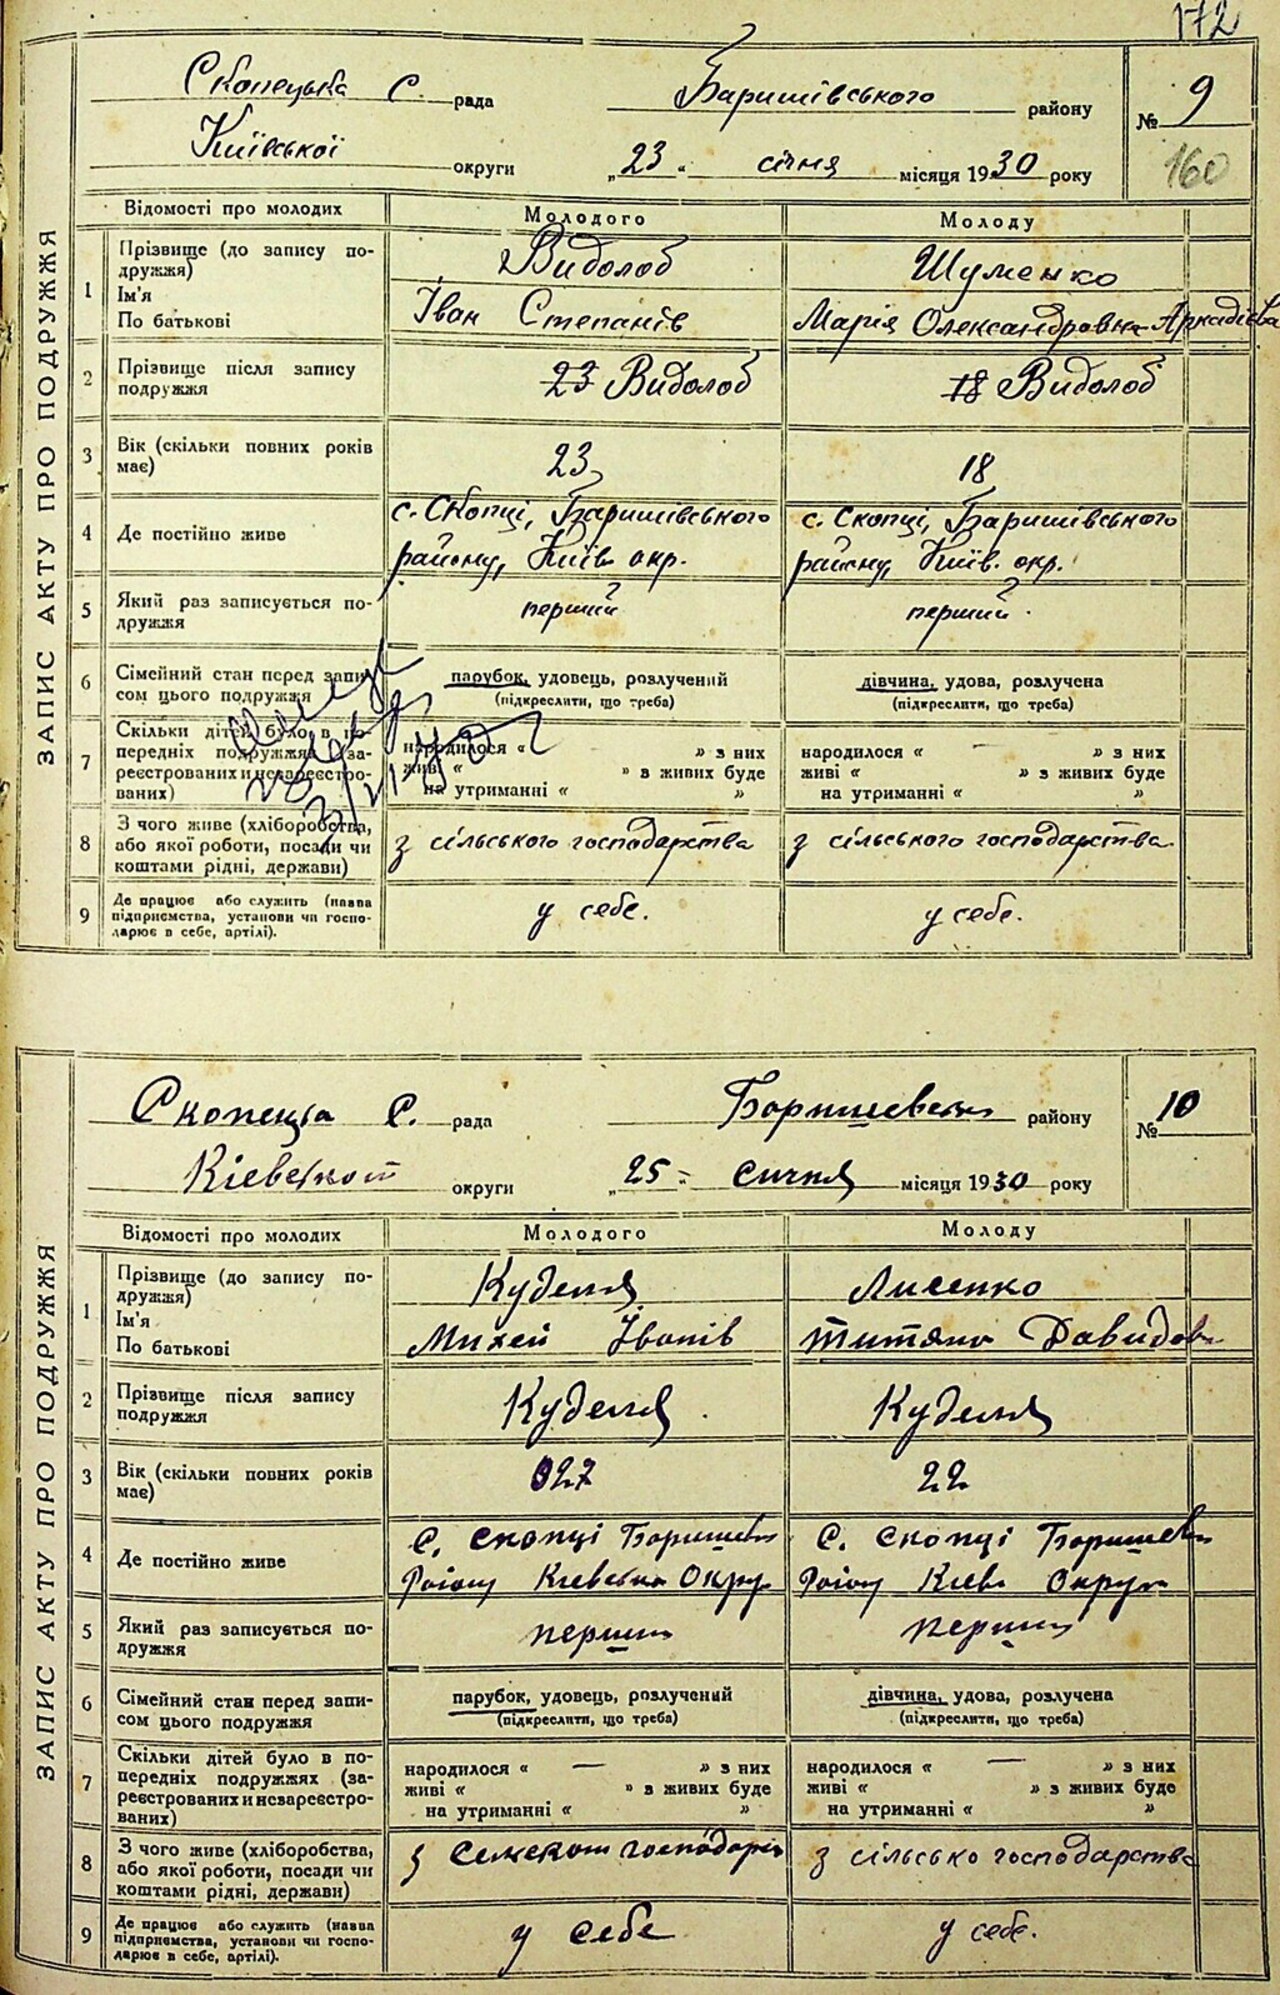 172
Скопецька С. рада Баришівського району № 9
Київської округи „23“ січня місяця 1930 року 160
ЗАПИС АКТУ ПРО ПОДРУЖЖЯ
Відомості про молодих Молодого Молоду
1 Прізвище (до запису по-
дружжя) Видолоб Шуменко
Ім'я
По батькові Іван Степанів Марія Олександровна Аркадієва
2 Прізвище після запису
подружжя 23 Видолоб 18 Видолоб
3 Вік (скільки повних років
має) 23 18
4 Де постійно живе с. Скопці, Баришівського с. Скопці, Баришівського
району, Київ окр. району, Київ. окр.
5 Який раз записується по-
дружжя перший перший
6 Сімейний стан перед запи-
сом цього подружжя парубок, удовець, розлучений дівчина, удова, розлучена
(підкреслити, що треба) (підкреслити, що треба)
7 Скільки дітей було в по-
передніх подружжях (за-
реєстрованих и незареєстро-
ваних) народилося « — » з них народилося « — » з них
живі « » з живих буде живі « » з живих буде
на утриманні « » на утриманні « »
8 З чого живе (хліборобства,
або якої роботи, посади чи
коштами рідні, держави) з сільського господарства з сільського господарства
9 Де працює або служить (назва
підприємства, установи чи госпо-
дарює в себе, артілі). у себе. у себе.
Скопецка С. рада Боришевськ району № 10
Кієвськои округи „25“ сичня місяця 1930 року
ЗАПИС АКТУ ПРО ПОДРУЖЖЯ
Відомості про молодих Молодого Молоду
1 Прізвище (до запису по-
дружжя) Куделя Лисенко
Ім'я
По батькові Михей Іванів Титяна Давидов
2 Прізвище після запису
подружжя Куделя Куделя
3 Вік (скільки повних років
має) 27 22
4 Де постійно живе С. Скопці Боришевск С. Скопці Боришевск
Раіону Кіевська Округ Раіону Кіевс Округ
5 Який раз записується по-
дружжя перши перши
6 Сімейний стан перед запи-
сом цього подружжя парубок, удовець, розлучений дівчина, удова, розлучена
(підкреслити, що треба) (підкреслити, що треба)
7 Скільки дітей було в по-
передніх подружжях (за-
реєстрованих и незареєстро-
ваних) народилося « — » з них народилося « — » з них
живі « » з живих буде живі « » з живих буде
на утриманні « » на утриманні « »
8 З чого живе (хліборобства,
або якої роботи, посади чи
коштами рідні, держави) з господарст з сільсько господарства
9 Де працює або служить (назва
підприємства, установи чи госпо-
дарює в себе, артілі). у себе у себе.